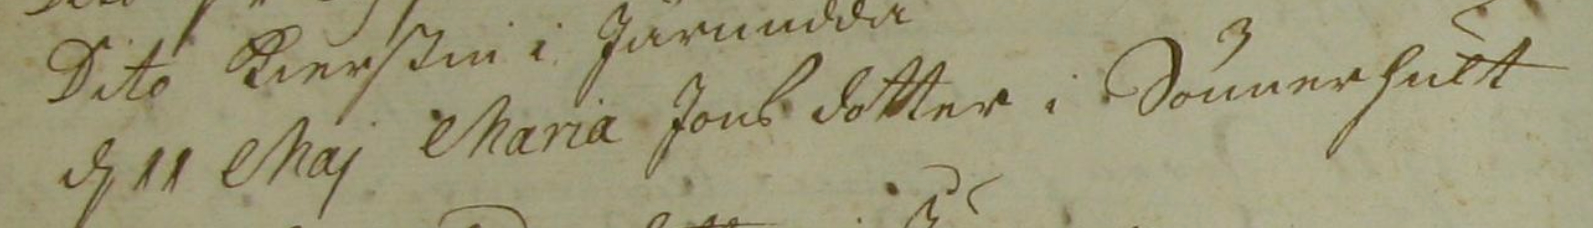 Dito Kierstin i Järnudda
d 11 Maj Maria Jons dotter i Sönnerhult